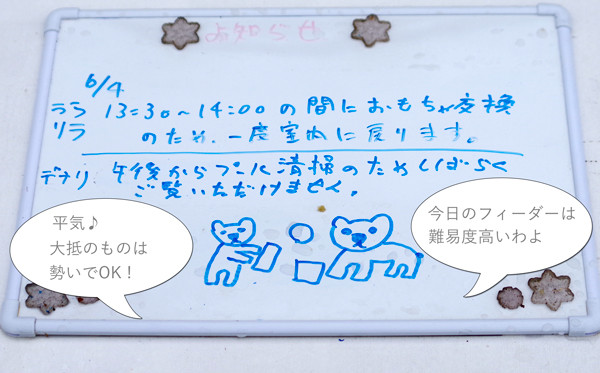 お知らせ
6/4
ララ 13:30〜14:00の間におもちゃ交換
リラ のため、一度室内に戻ります。
デナリ 午後からプール清掃のためしばらく
ご覧いただけません。
平気♪
大抵のものは
勢いでOK！
今日のフィーダーは
難易度高いわよ